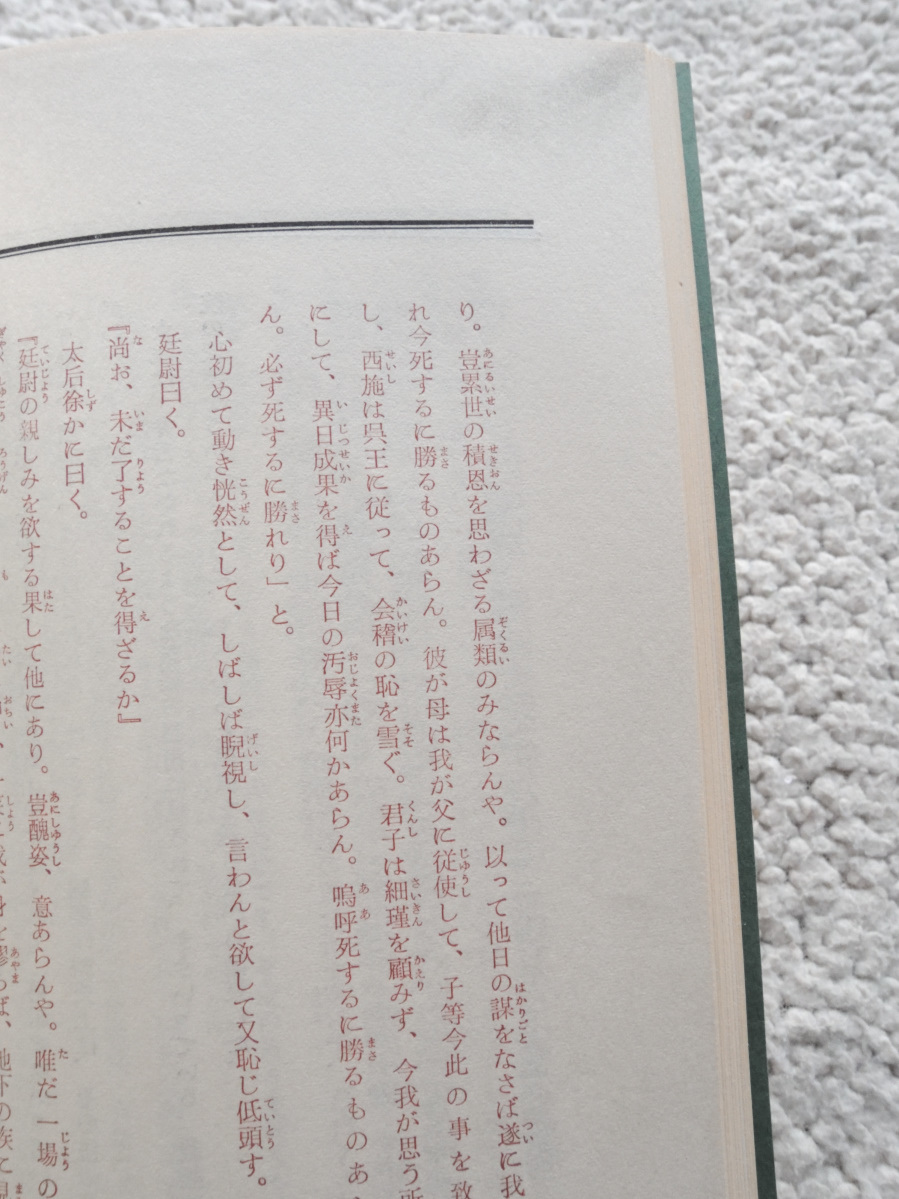 り。豈累世の積恩を思わざる属類のみならんや。以って他日の謀をなさば遂に我
れ今死するに勝るものあらん。彼が母は我が父に従使して、子等今此の事を致
し、西施は呉王に従って、会稽の恥を雪ぐ。君子は細瑾を顧みず、今我が思う所
にして、異日成果を得ば今日の汚辱亦何かあらん。嗚呼死するに勝るものあ
ん。必ず死するに勝れり」と。
心初めて動き恍然として、しばしば睨視し、言わんと欲して又恥じ低頭す。
廷尉曰く。
『尚お、未だ了することを得ざるか』
太后徐かに曰く。
『廷尉の親しみを欲する果して他にあり。豈醜姿、意あらんや。唯だ一場の